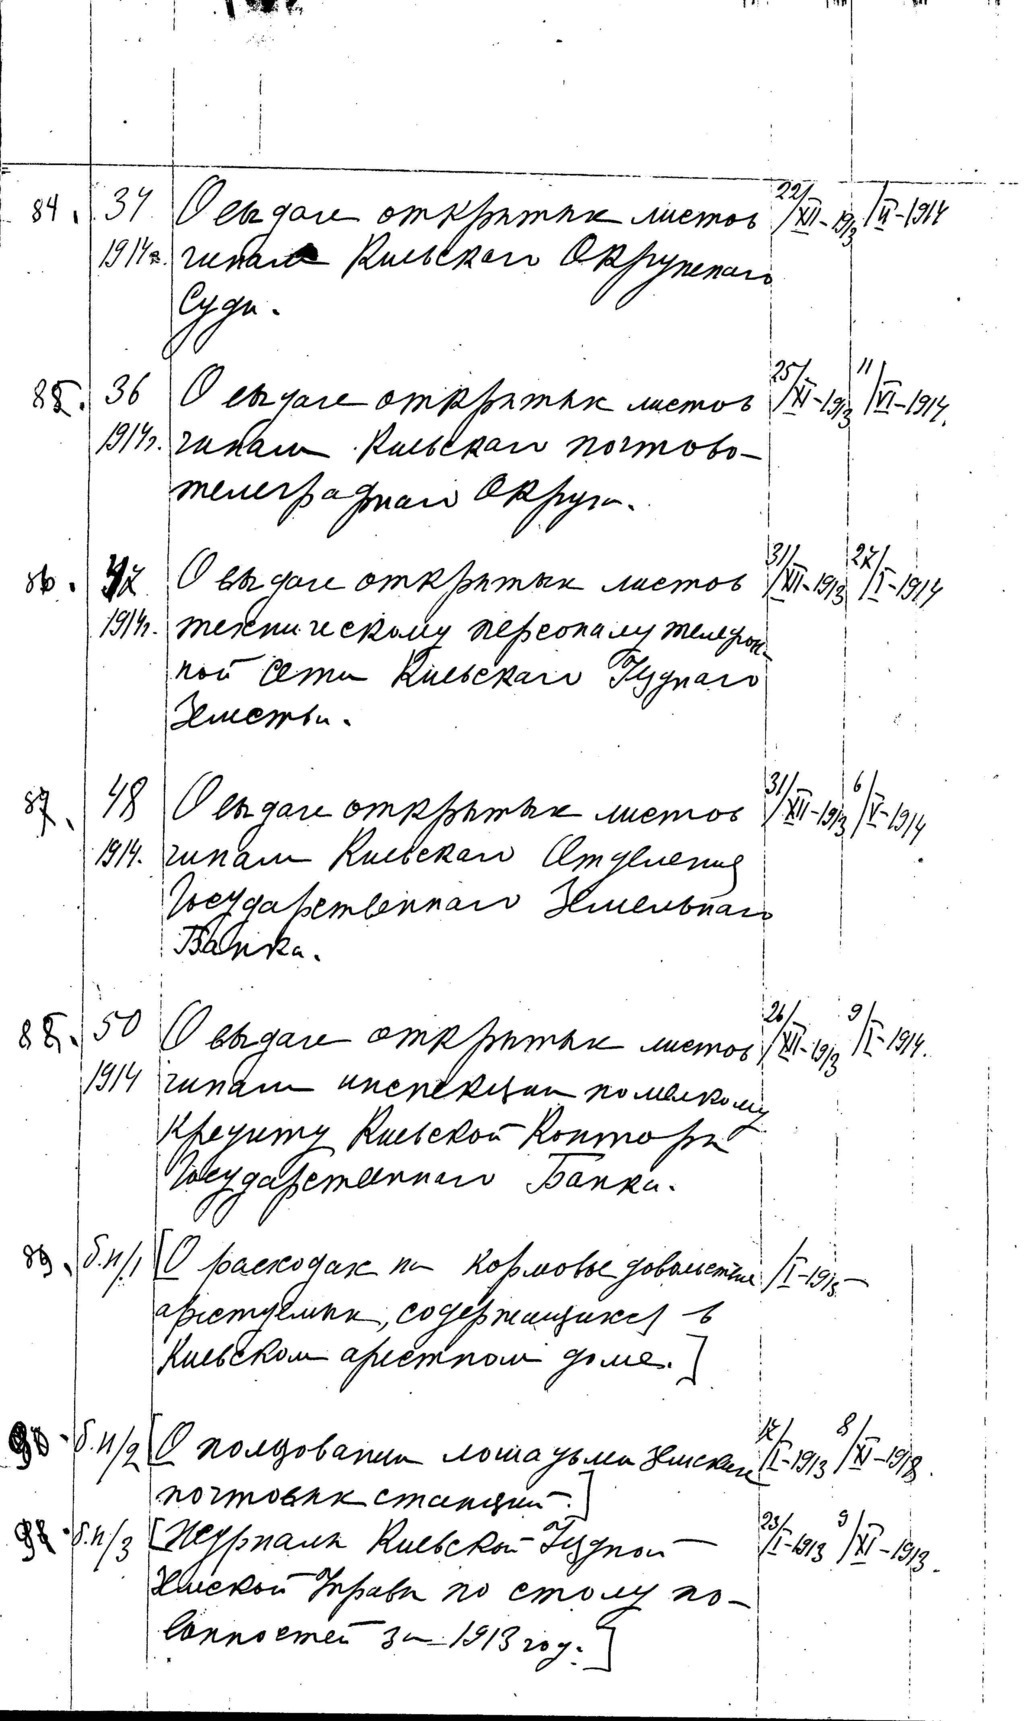 84. 34 О выдаче открытых листов 22/XII-1913 /II-1914
1914г. чинам Киевскаго Окружнаго
Суда.
85. 36 О выдаче открытых листов 25/XI-1913 11/VI-1914.
1914г. чинам Киевскаго почтово-
телеграфнаго Округа.
86. 47 О выдаче открытых листов 31/XII-1913 27/I-1914
1914г. техническому персоналу телефон-
ной сети Киевскаго Уѕзднаго
Земства.
87. 48 О выдаче открытых листов 31/XII-1913 6/V-1914
1914. чинам Киевскаго Отделения
Государственнаго Земельнаго
Банка.
88. 50 О выдаче открытых листов 26/XI-1913 9/I-1914.
1914 чинам инспекции по мелкому
кредиту Киевской Конторы
Государственнаго Банка.
89. б.н/1 [О расходах на кормовое довольствие /I-1913-
арестуемых, содержащихся в
Киевском арестном доме.]
90. б.н/2 [О пользовании лошадьми Земских 17/I-1913 8/XI-1918.
почтовых станций.]
91. б.н/3 [Журналы Киевской Уездной 23/I-1913 9/XI-1913.
Земской Управы по столу по-
винностей за 1913 год.]